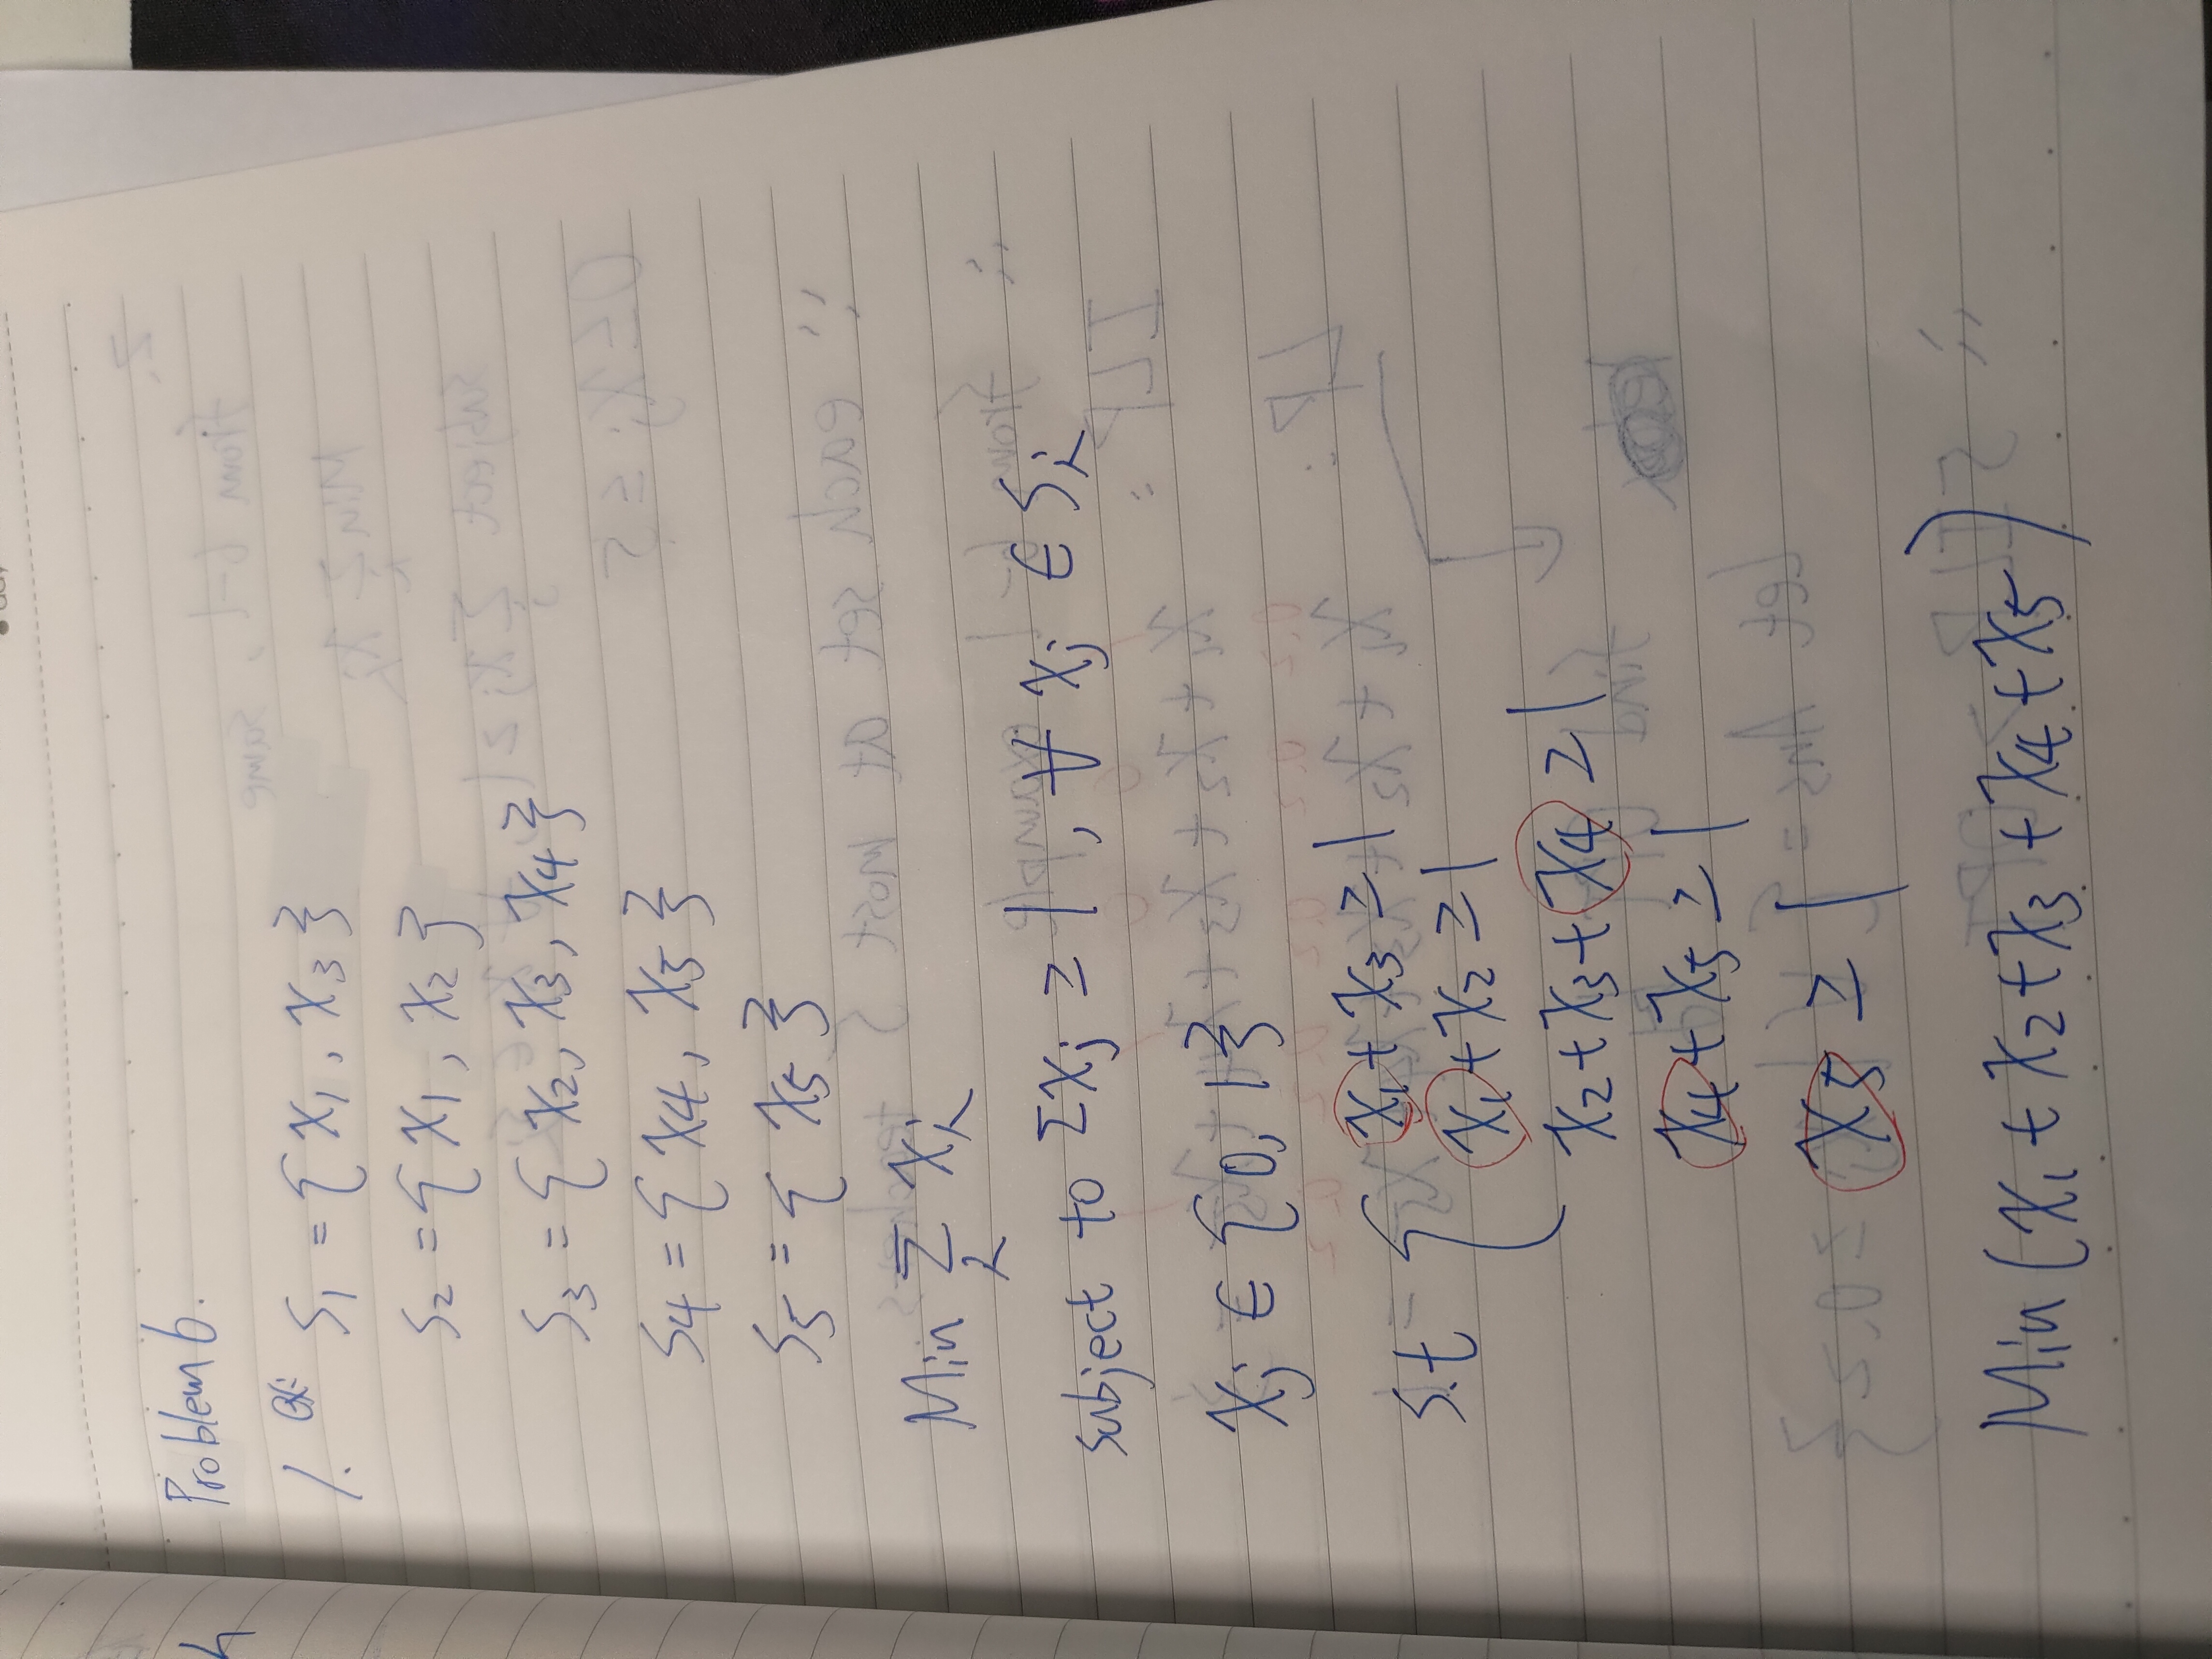 Problem 6.
1. ex: S₁ = { x₁, x₃ }
S₂ = { x₁, x₂ }
S₃ = { x₂, x₃, x₄ }
S₄ = { x₄, x₅ }
S₅ = { x₅ }
Min Σ xᵢ
i
subject to Σxⱼ ≥ 1, ∀ xⱼ ∈ Sᵢ
xⱼ ∈ {0, 1}
s.t { x₁ + x₃ ≥ 1
x₁ + x₂ ≥ 1
x₂ + x₃ + x₄ ≥ 1
x₄ + x₅ ≥ 1
x₅ ≥ 1
Min (x₁ + x₂ + x₃ + x₄ + x₅)